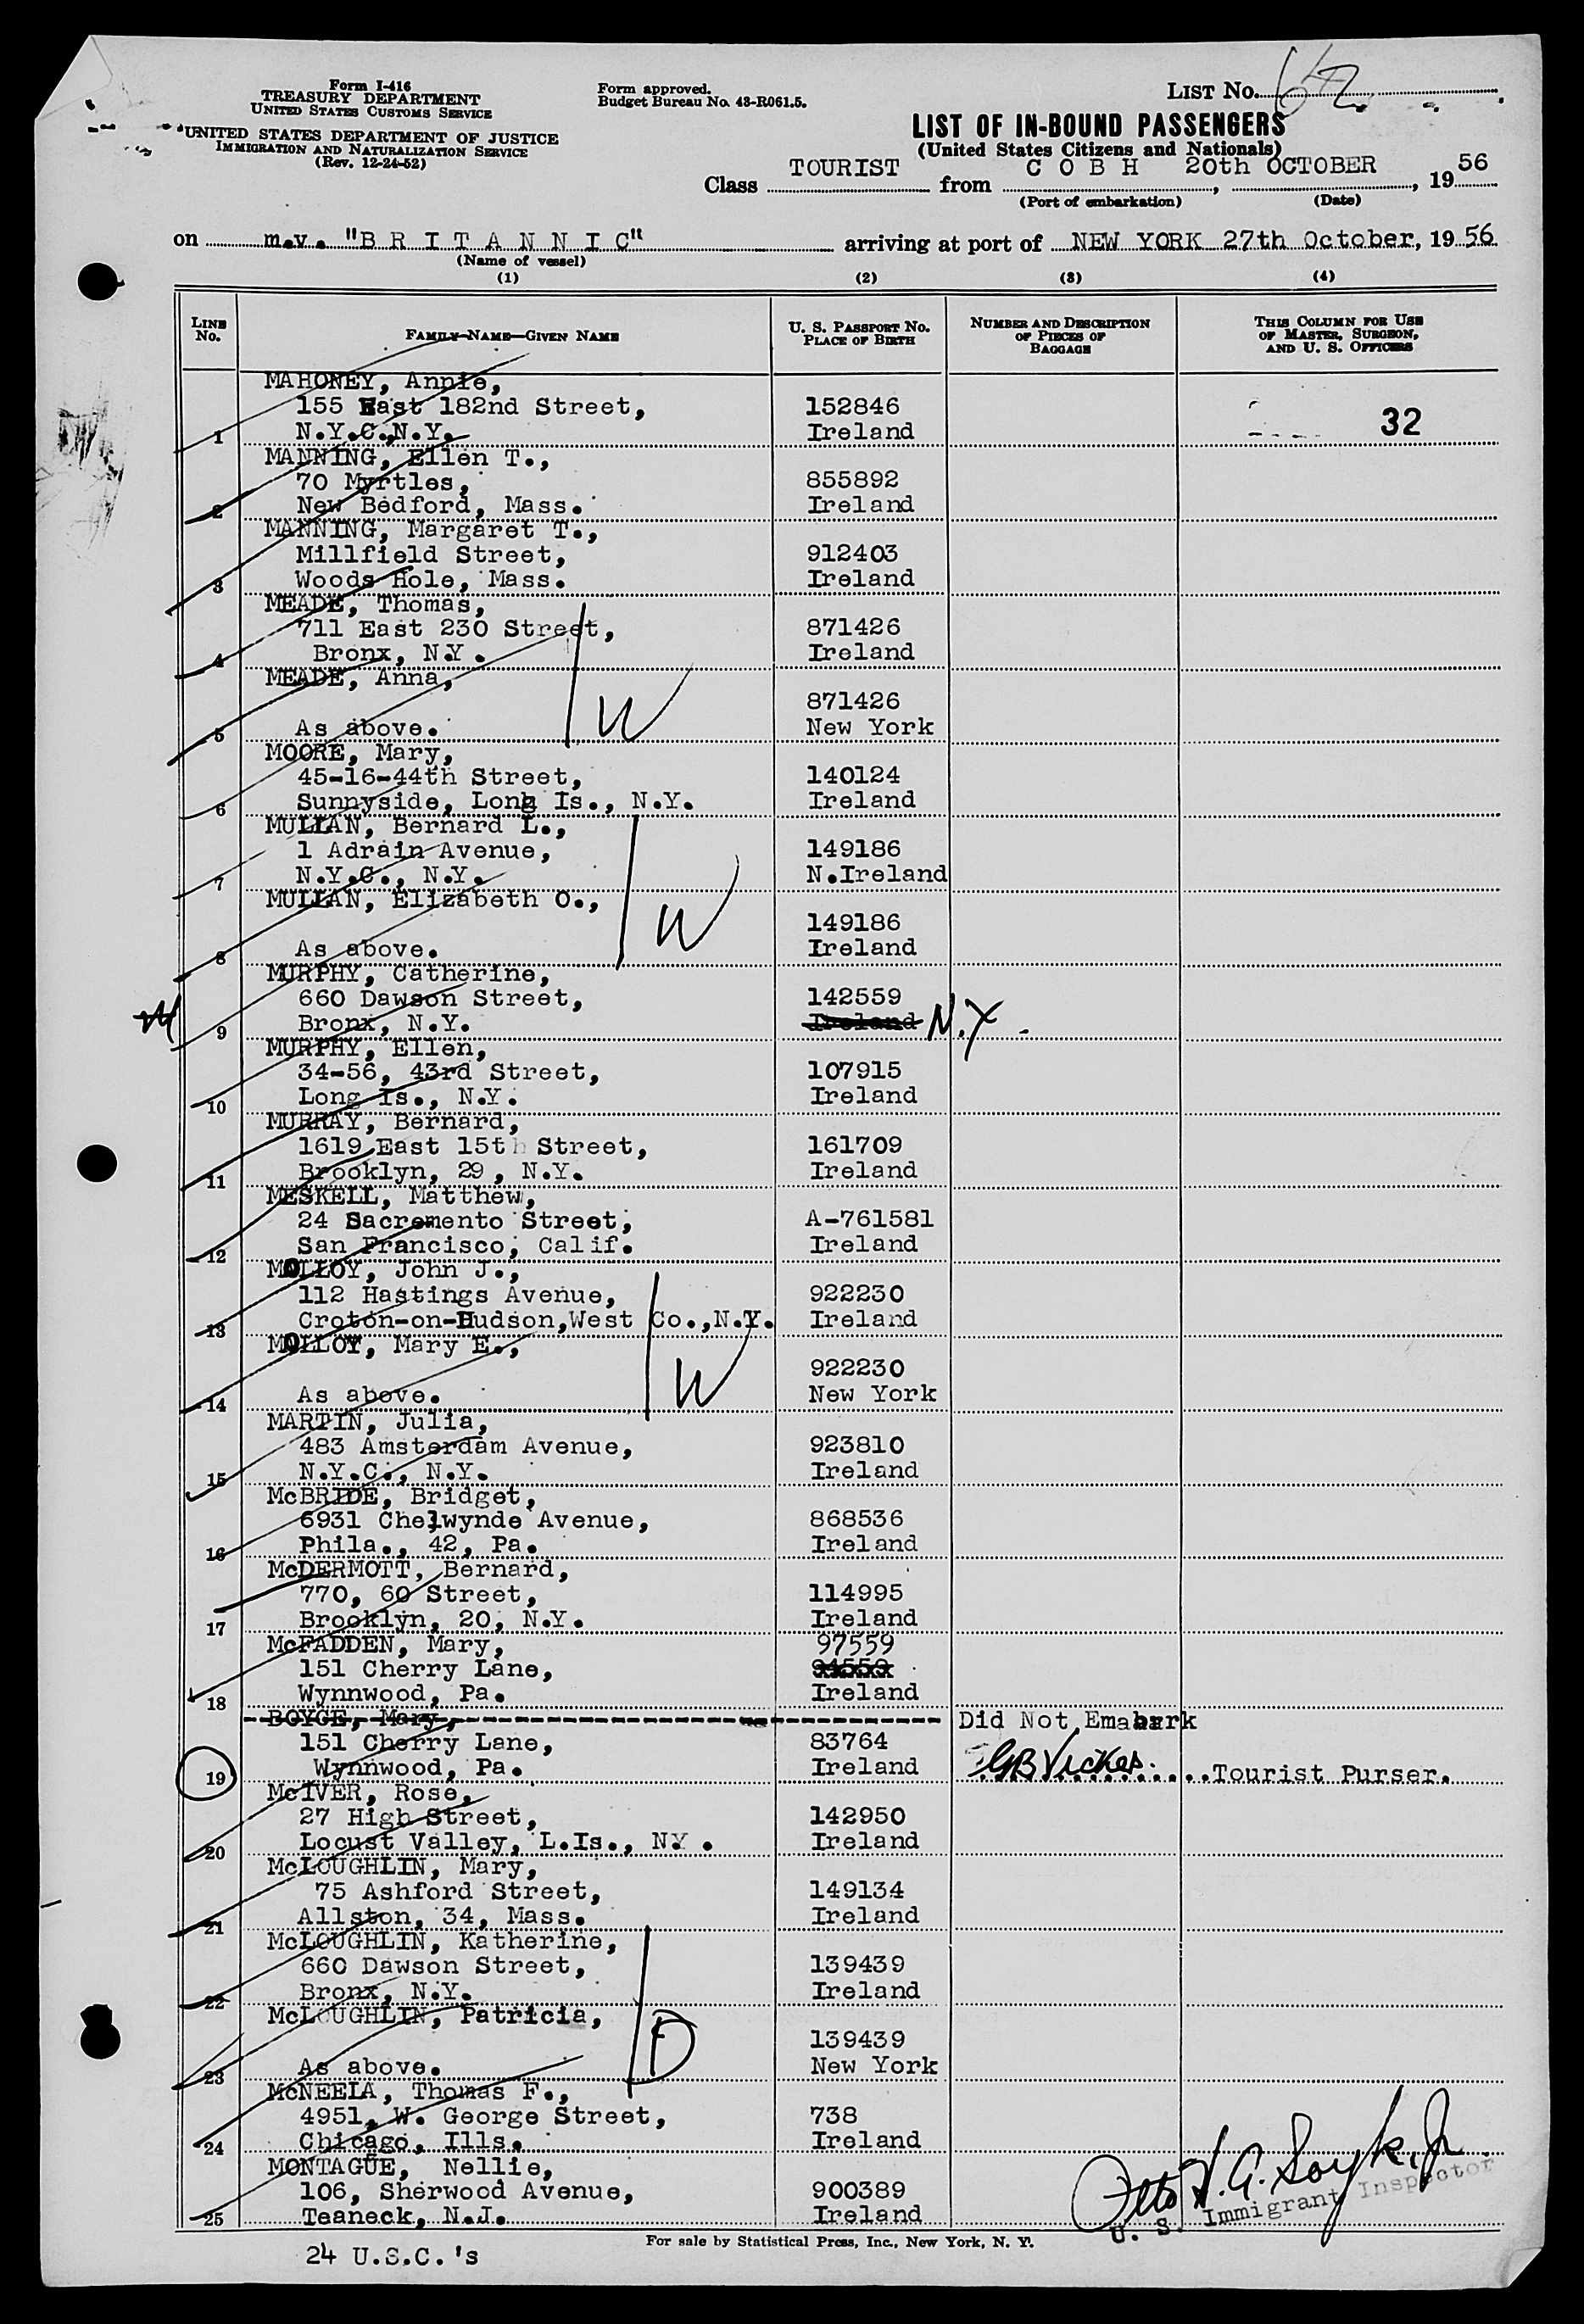 Form I-416
TREASURY DEPARTMENT
UNITED STATES CUSTOMS SERVICE
UNITED STATES DEPARTMENT OF JUSTICE
IMMIGRATION AND NATURALIZATION SERVICE
(Rev. 12-24-52)
Form approved.
Budget Bureau No. 43-R061.5.
LIST No.
LIST OF IN-BOUND PASSENGERS
(United States Citizens and Nationals)
Class TOURIST from C O B H 20th OCTOBER, 1956
(Port of embarkation) (Date)
on m.v. "B R I T A N N I C" arriving at port of NEW YORK 27th October, 1956
(Name of vessel)
(1) (2) (3) (4)
LINE No. FAMILY NAME—GIVEN NAME U. S. PASSPORT No. PLACE OF BIRTH NUMBER AND DESCRIPTION OF PIECES OF BAGGAGE THIS COLUMN FOR USE OF MASTER, SURGEON, AND U. S. OFFICERS
MAHONEY, Annie,
155 East 182nd Street, 152846
1 N.Y.C.,N.Y. Ireland 32
MANNING, Ellen T.,
70 Myrtles, 855892
2 New Bedford, Mass. Ireland
MANNING, Margaret T.,
Millfield Street, 912403
3 Woods Hole, Mass. Ireland
MEADE, Thomas,
711 East 230 Street, 871426
4 Bronx, N.Y. Ireland
MEADE, Anna,
871426
5 As above. W New York
MOORE, Mary,
45-16-44th Street, 140124
6 Sunnyside, Long Is., N.Y. Ireland
MULLAN, Bernard L.,
1 Adrain Avenue, 149186
7 N.Y.C., N.Y. N.Ireland
MULLAN, Elizabeth O.,
149186
8 As above. W Ireland
MURPHY, Catherine,
660 Dawson Street, 142559
9 Bronx, N.Y. Ireland N.Y.
MURPHY, Ellen,
34-56, 43rd Street, 107915
10 Long Is., N.Y. Ireland
MURRAY, Bernard,
1619 East 15th Street, 161709
11 Brooklyn, 29, N.Y. Ireland
MESKELL, Matthew,
24 Sacremento Street, A-761581
12 San Francisco, Calif. Ireland
MOLLOY, John J.,
112 Hastings Avenue, 922230
13 Croton-on-Hudson,West Co.,N.Y. Ireland
MOLLOY, Mary E.,
922230
14 As above. W New York
MARTIN, Julia,
483 Amsterdam Avenue, 923810
15 N.Y.C., N.Y. Ireland
McBRIDE, Bridget,
6931 Chelwynde Avenue, 868536
16 Phila., 42, Pa. Ireland
McDERMOTT, Bernard,
770, 60 Street, 114995
17 Brooklyn, 20, N.Y. Ireland
McFADDEN, Mary, 97559
151 Cherry Lane,
18 Wynnwood, Pa. Ireland
BOYCE, Mary, Did Not Emabark
151 Cherry Lane, 83764
19 Wynnwood, Pa. Ireland GB Vickes. Tourist Purser.
McIVER, Rose,
27 High Street, 142950
20 Locust Valley, L.Is., NY. Ireland
McLOUGHLIN, Mary,
75 Ashford Street, 149134
21 Allston, 34, Mass. Ireland
McLOUGHLIN, Katherine,
660 Dawson Street, 139439
22 Bronx, N.Y. Ireland
McLOUGHLIN, Patricia,
139439
23 As above. D New York
McNEELA, Thomas F.,
4951, W. George Street, 738
24 Chicago, Ills. Ireland
MONTAGUE, Nellie,
106, Sherwood Avenue, 900389
25 Teaneck, N.J. Ireland
U. S. Immigrant Inspector
For sale by Statistical Press, Inc., New York, N. Y.
24 U.S.C.'s